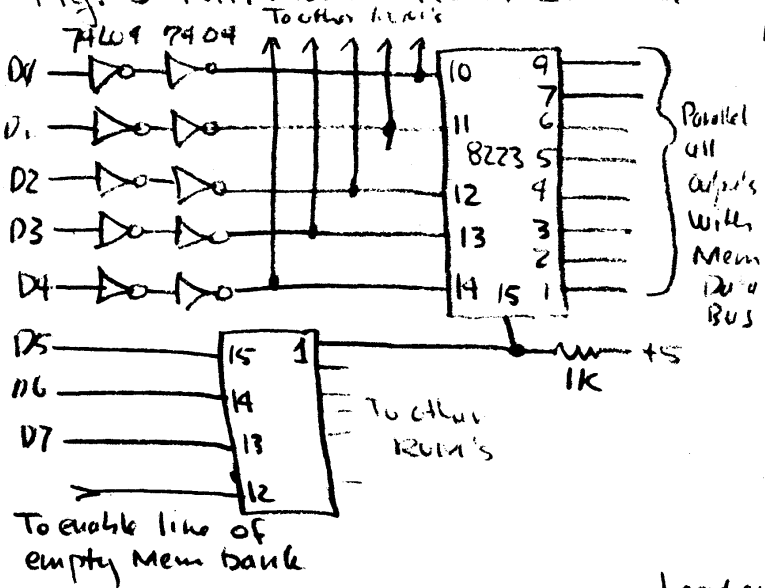 Fig.
To other
74L04 7404
D0
D1
D2
D3
D4
10
11
12
13
14 15
8223
9
7
6
5
4
3
2
1
Parallel
all
outputs
with
Mem
Data
Bus
+5
1K
D5
D6
D7
15 1
14
13
12
To other
ROM's
To enable line of
empty Mem bank